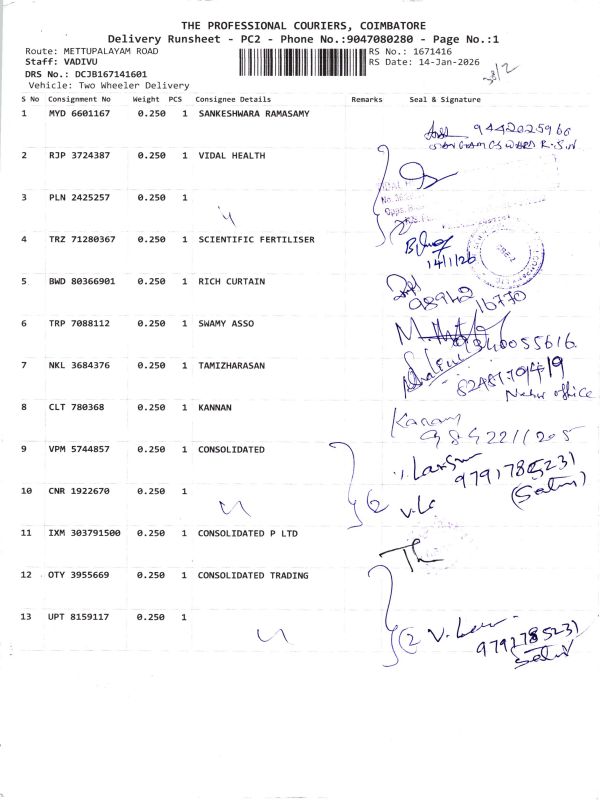 THE PROFESSIONAL COURIERS, COIMBATORE
Delivery Runsheet - PC2 - Phone No.:9047080280 - Page No.:1
Route: METTUPALAYAM ROAD RS No.: 1671416
Staff: VADIVU RS Date: 14-Jan-2026
DRS No.: DCJB167141601
Vehicle: Two Wheeler Delivery
S No Consignment No Weight PCS Consignee Details Remarks Seal & Signature
1 MYD 6601167 0.250 1 SANKESHWARA RAMASAMY
9442025960
2 RJP 3724387 0.250 1 VIDAL HEALTH
3 PLN 2425257 0.250 1
4 TRZ 71280367 0.250 1 SCIENTIFIC FERTILISER
14/1/26
5 BWD 80366901 0.250 1 RICH CURTAIN
98942 16770
6 TRP 7088112 0.250 1 SWAMY ASSO
7 NKL 3684376 0.250 1 TAMIZHARASAN
office
8 CLT 780368 0.250 1 KANNAN
9842211205
9 VPM 5744857 0.250 1 CONSOLIDATED
9791785231
10 CNR 1922670 0.250 1
11 IXM 303791500 0.250 1 CONSOLIDATED P LTD
12 OTY 3955669 0.250 1 CONSOLIDATED TRADING
13 UPT 8159117 0.250 1
2 V. 
9791785231